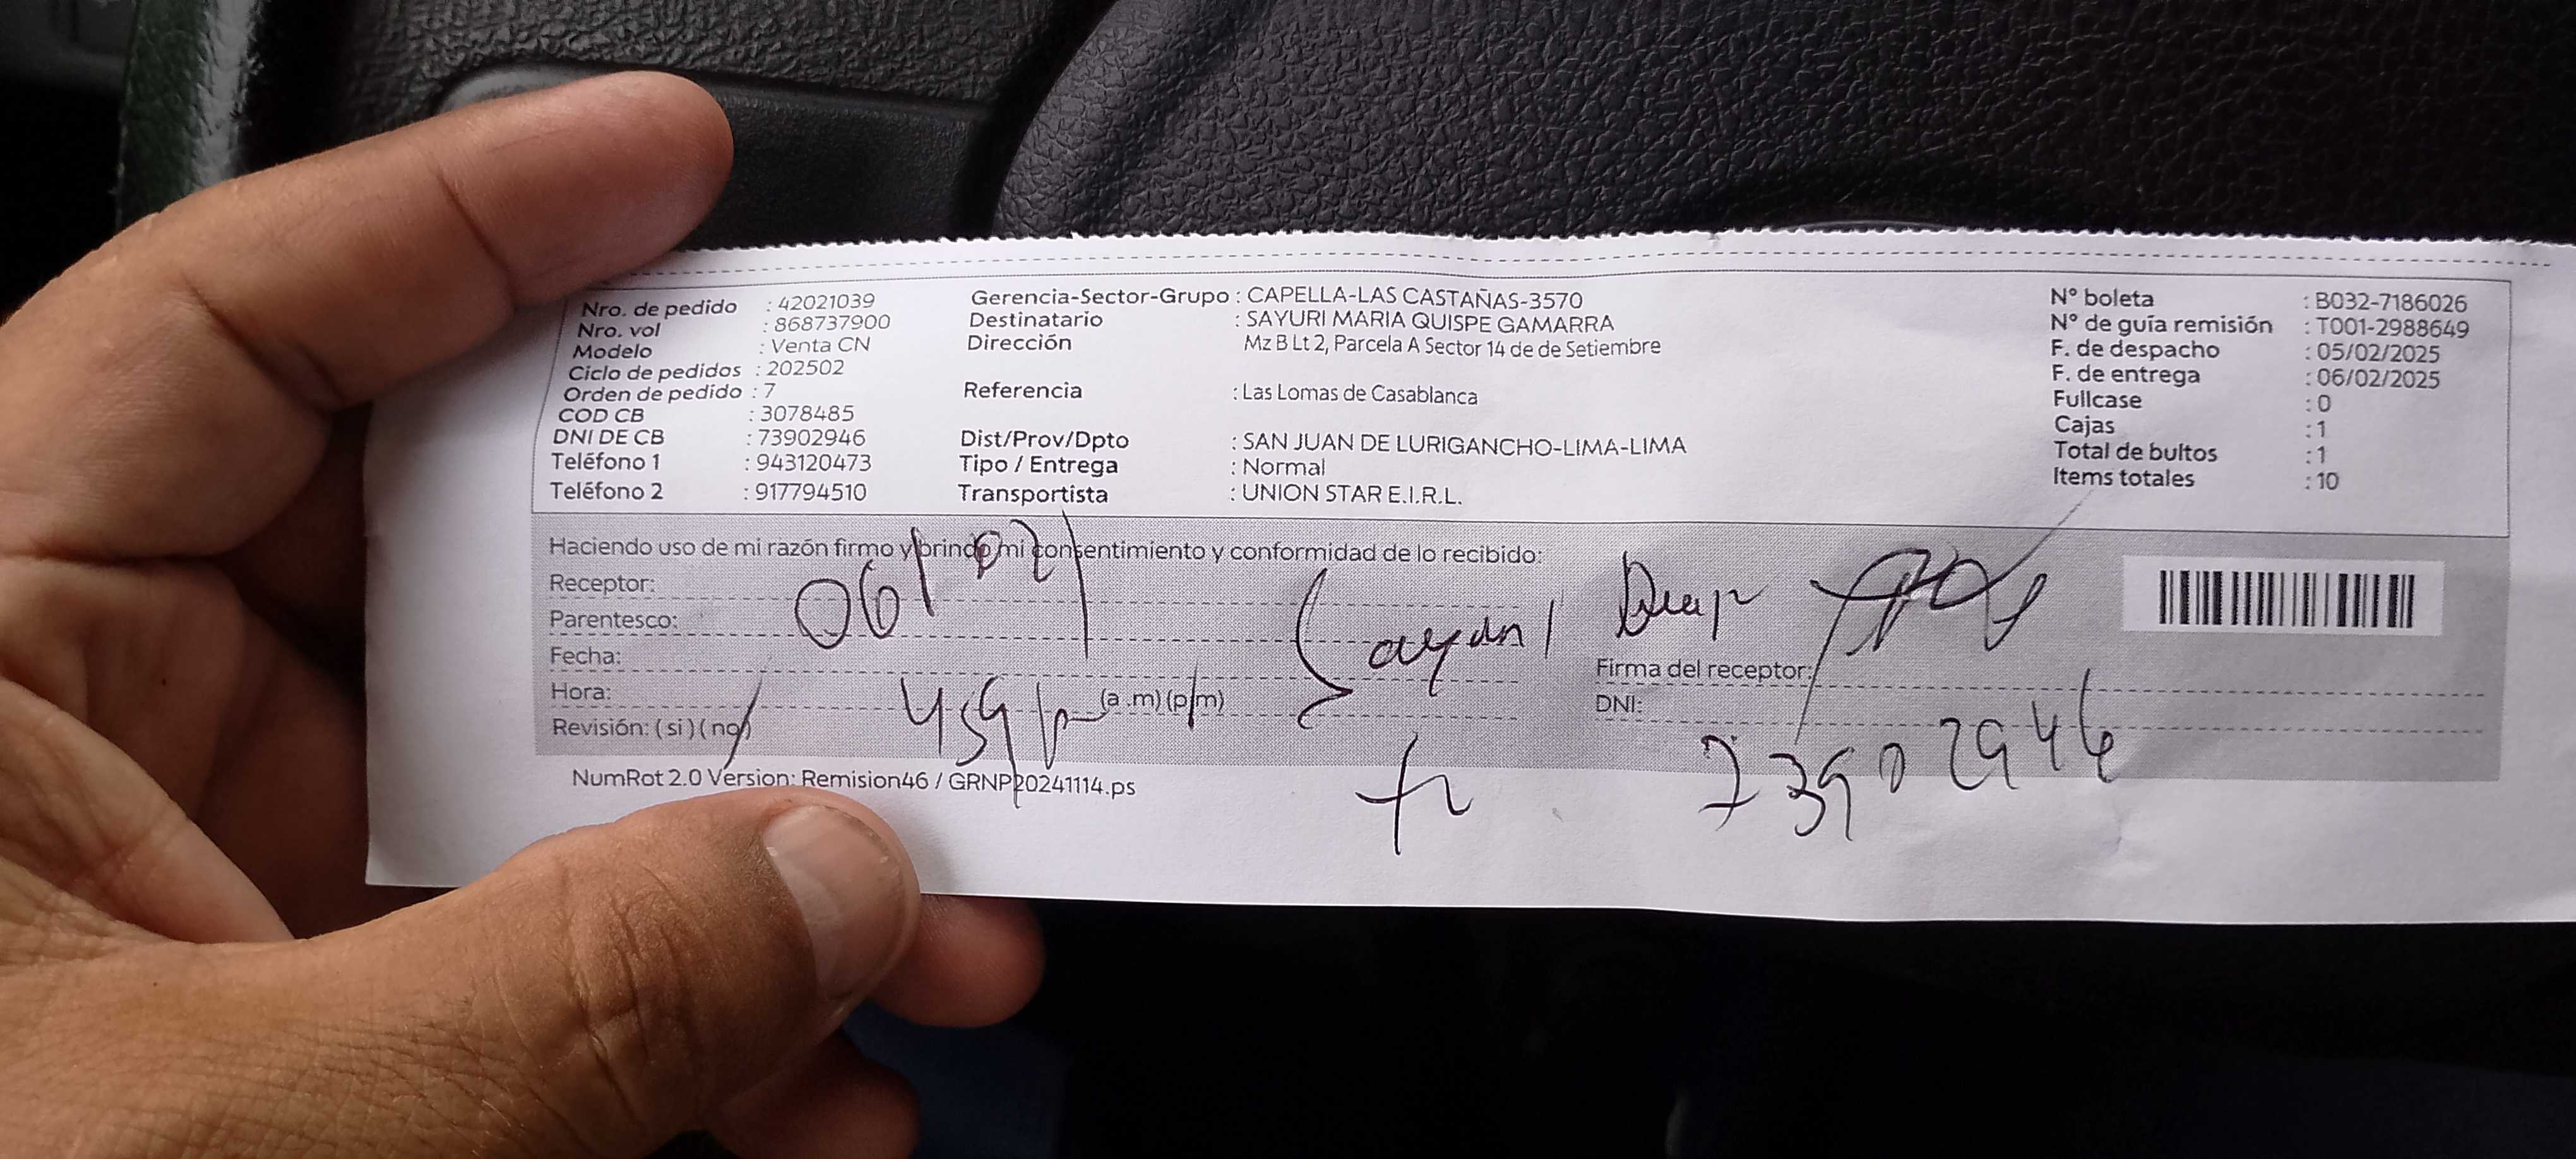 Nro. de pedido : 42021039
Nro. vol : 868737900
Modelo : Venta CN
Ciclo de pedidos : 202502
Orden de pedido : 7
COD CB : 3078485
DNI DE CB : 73902946
Teléfono 1 : 943120473
Teléfono 2 : 917794510
Gerencia-Sector-Grupo : CAPELLA-LAS CASTAÑAS-3570
Destinatario : SAYURI MARIA QUISPE GAMARRA
Dirección Mz B Lt 2, Parcela A Sector 14 de de Setiembre
Referencia : Las Lomas de Casablanca
Dist/Prov/Dpto : SAN JUAN DE LURIGANCHO-LIMA-LIMA
Tipo / Entrega : Normal
Transportista : UNION STAR E.I.R.L.
N° boleta : B032-7186026
N° de guía remisión : T001-2988649
F. de despacho : 05/02/2025
F. de entrega : 06/02/2025
Fullcase : 0
Cajas : 1
Total de bultos : 1
Items totales : 10
Haciendo uso de mi razón firmo y brindo mi consentimiento y conformidad de lo recibido:
Receptor:
Parentesco:
06/02/
Fecha:
Hora: 459 p (a.m) (p.m)
Revisión: ( si ) ( no )
Firma del receptor:
DNI:
73902946
NumRot 2.0 Version: Remision46 / GRNP20241114.ps